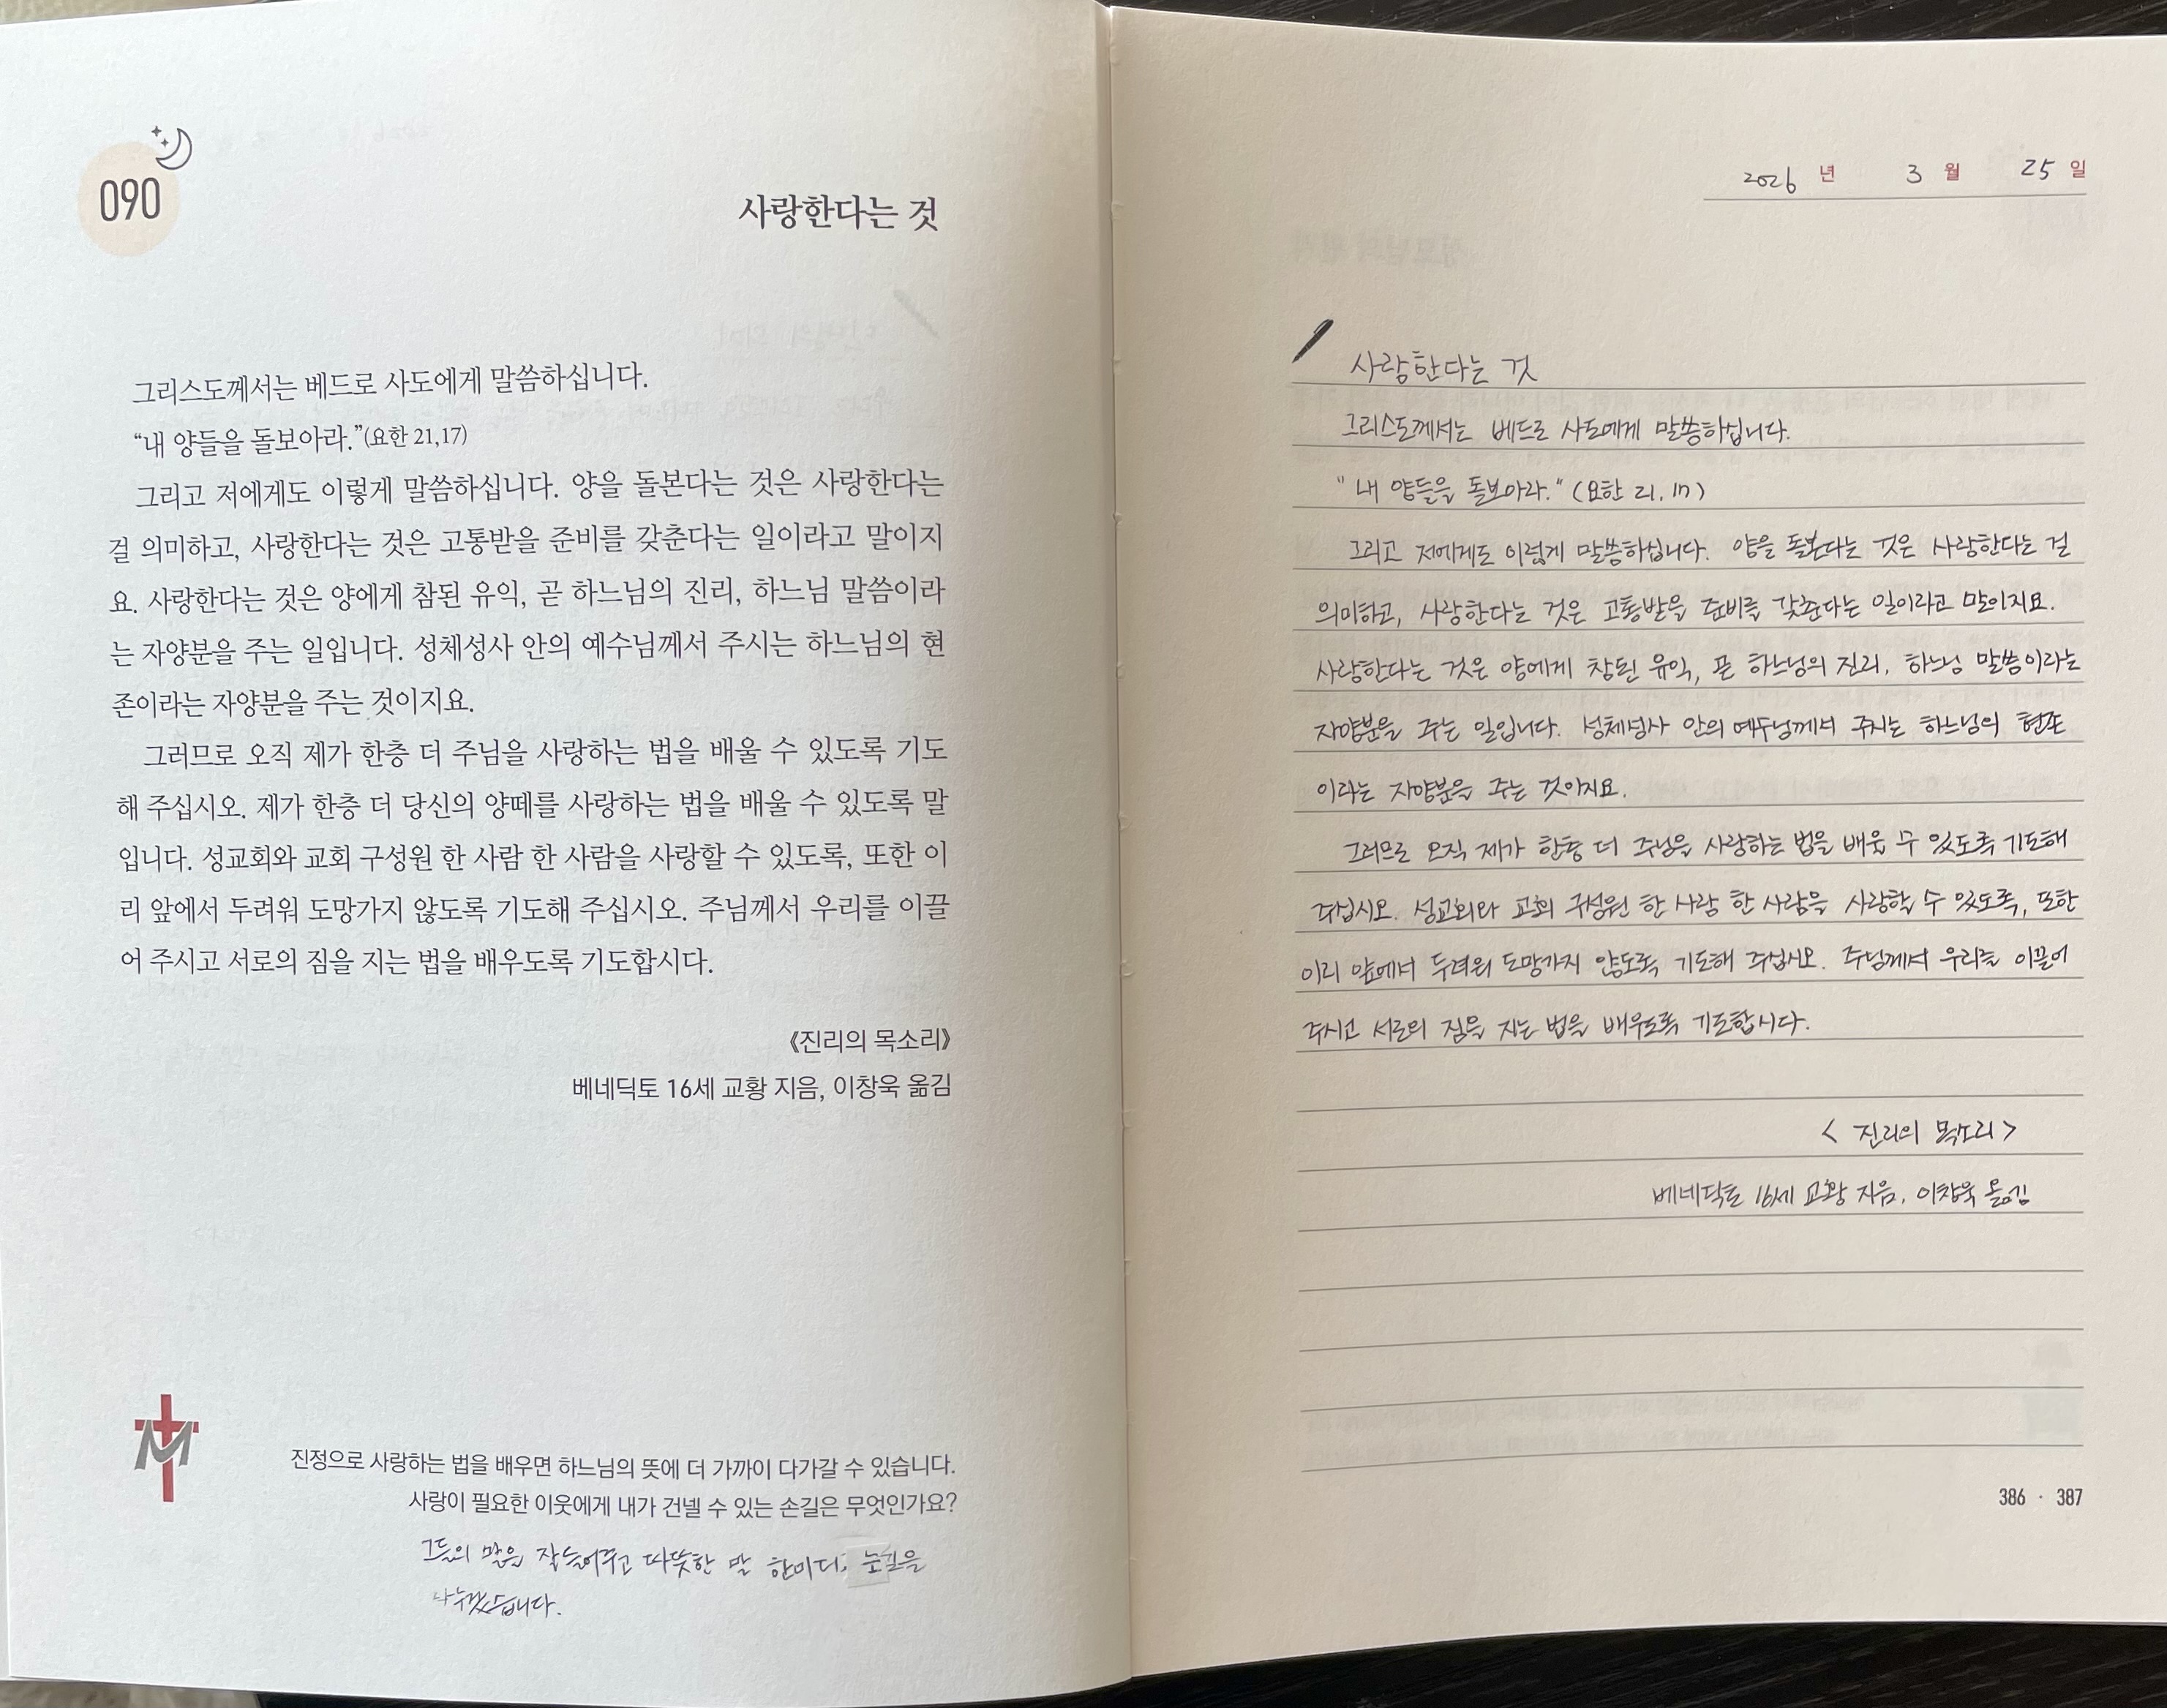 090
사랑한다는 것
그리스도께서는 베드로 사도에게 말씀하십니다.
“내 양들을 돌보아라.”(요한 21,17)
그리고 저에게도 이렇게 말씀하십니다. 양을 돌본다는 것은 사랑한다는
걸 의미하고, 사랑한다는 것은 고통받을 준비를 갖춘다는 일이라고 말이지
요. 사랑한다는 것은 양에게 참된 유익, 곧 하느님의 진리, 하느님 말씀이라
는 자양분을 주는 일입니다. 성체성사 안의 예수님께서 주시는 하느님의 현
존이라는 자양분을 주는 것이지요.
그러므로 오직 제가 한층 더 주님을 사랑하는 법을 배울 수 있도록 기도
해 주십시오. 제가 한층 더 당신의 양떼를 사랑하는 법을 배울 수 있도록 말
입니다. 성교회와 교회 구성원 한 사람 한 사람을 사랑할 수 있도록, 또한 이
리 앞에서 두려워 도망가지 않도록 기도해 주십시오. 주님께서 우리를 이끌
어 주시고 서로의 짐을 지는 법을 배우도록 기도합시다.
《진리의 목소리》
베네딕토 16세 교황 지음, 이창욱 옮김
진정으로 사랑하는 법을 배우면 하느님의 뜻에 더 가까이 다가갈 수 있습니다.
사랑이 필요한 이웃에게 내가 건넬 수 있는 손길은 무엇인가요?
그들의 말을 잘 들어주고 따뜻한 말 한마디, 눈길을
나누겠습니다.
2026 년 3 월 25 일
사랑한다는 것
그리스도께서는 베드로 사도에게 말씀하십니다.
"내 양들을 돌보아라." (요한 21, 17)
그리고 저에게도 이렇게 말씀하십니다. 양을 돌본다는 것은 사랑한다는 걸
의미하고, 사랑한다는 것은 고통받을 준비를 갖춘다는 일이라고 말이지요.
사랑한다는 것은 양에게 참된 유익, 곧 하느님의 진리, 하느님 말씀이라는
자양분을 주는 일입니다. 성체성사 안의 예수님께서 주시는 하느님의 현존
이라는 자양분을 주는 것이지요.
그러므로 오직 제가 한층 더 주님을 사랑하는 법을 배울 수 있도록 기도해
주십시오. 성교회와 교회 구성원 한 사람 한 사람을 사랑할 수 있도록, 또한
이리 앞에서 두려워 도망가지 않도록 기도해 주십시오. 주님께서 우리를 이끌어
주시고 서로의 짐을 지는 법을 배우도록 기도합시다.
< 진리의 목소리 >
베네딕토 16세 교황 지음, 이창욱 옮김
386 · 387